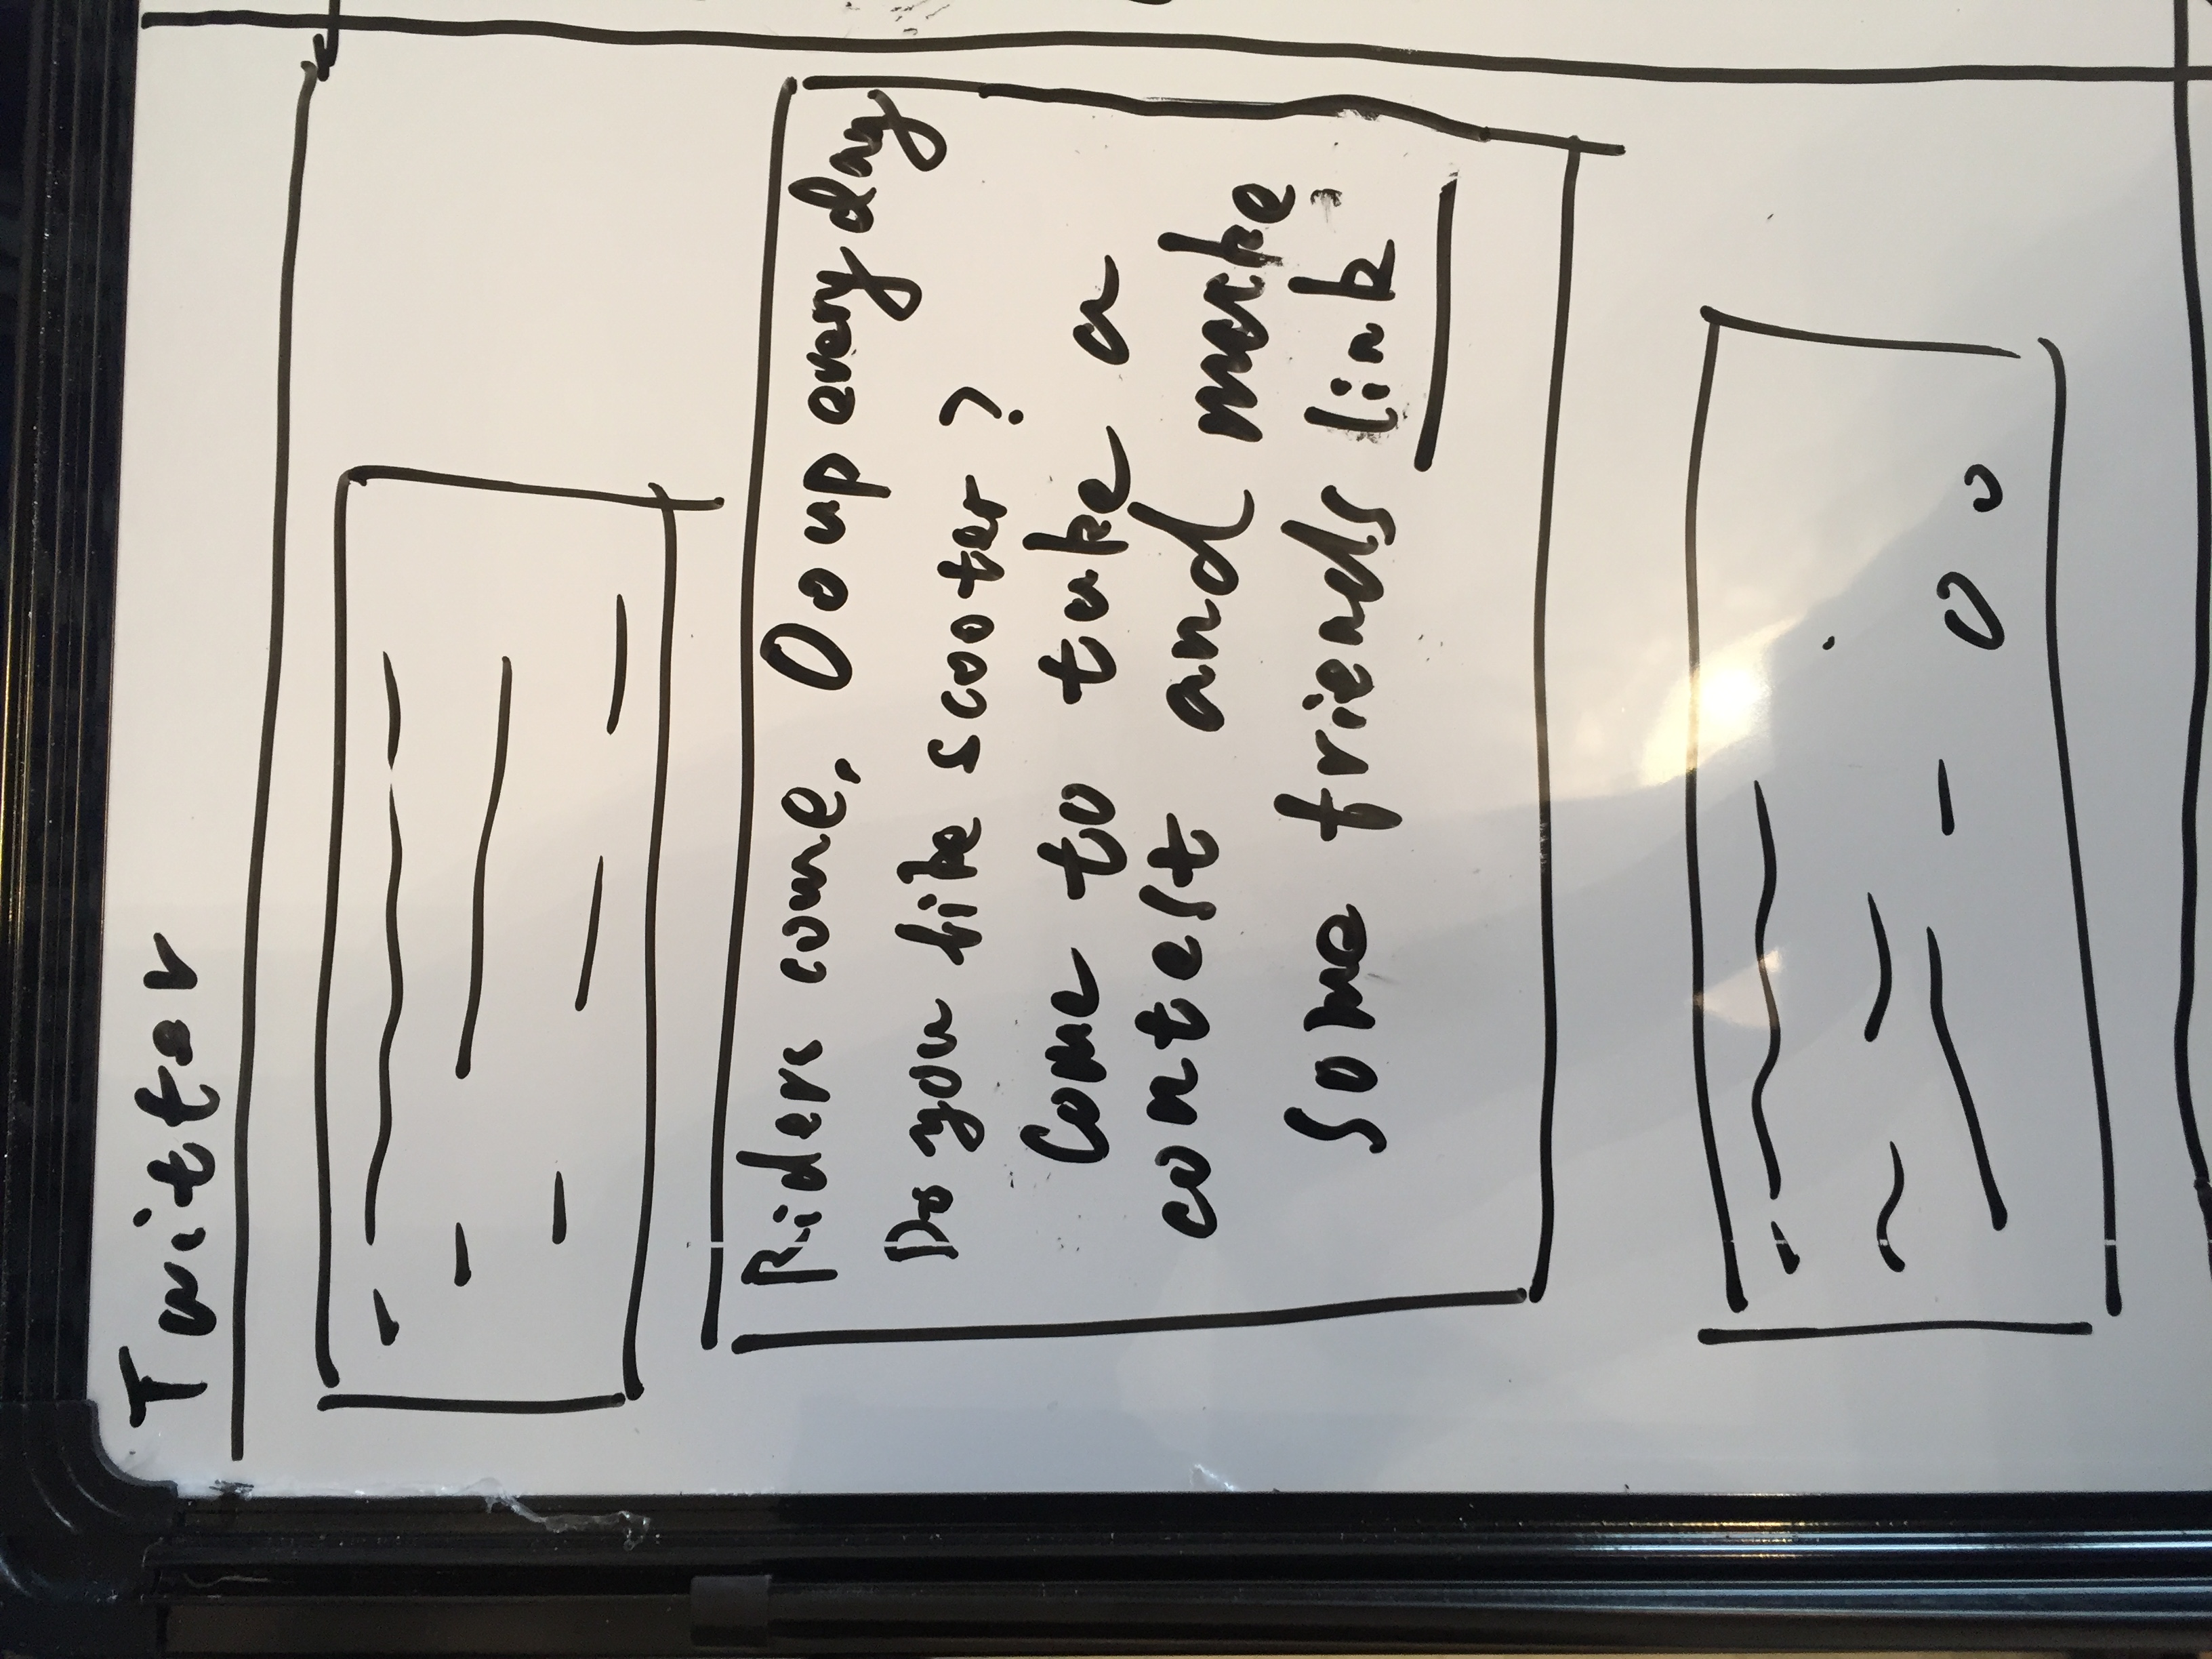 Twitter
Riders come. Oo up every day
Do you like scooter?
Come to take a
contest and make
some friends link